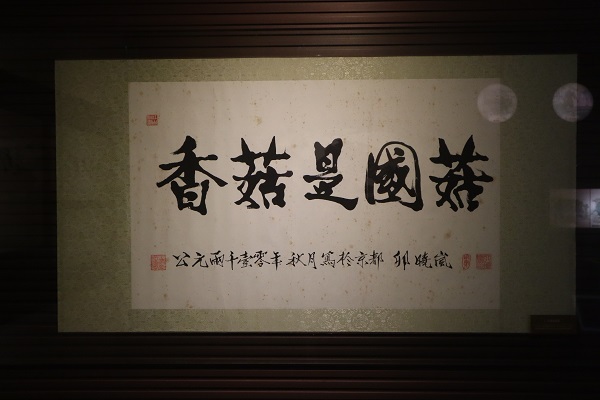 香菇是國菇
公元兩千壹零年秋月寫於京都 卯曉嵐